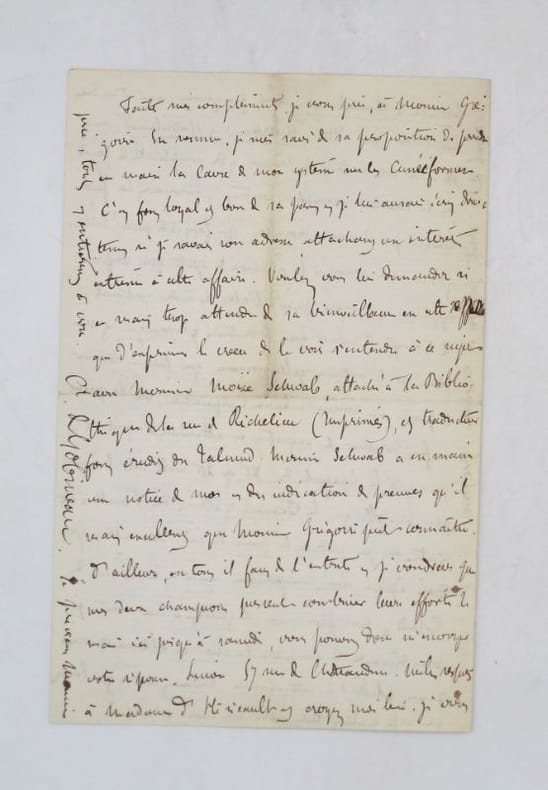 Toute mes compliments, je vous prie, à Monsieur Gré-
goire. En resume, je suis ravi de sa proposition de prendre
en main la Cause de mon système sur les Cunéiformes
C'es fort loyal et bon de sa part et je lui aurais écrit
si je savais son adresse attachant un intérêt
extrême à cette affaire. Voulez vous lui demander si
ce serait trop attendre de sa bienveillance en cette
que d'exprimer le voeu de le voir s'entendre à ce sujet
avec Monsieur Moïse Schwab, attaché à la Biblio-
thèque de la rue de Richelieu (Imprimés), et traducteur
fort érudit du Talmud. Monsieur Schwab a en main
une notice de moi et des indications de preuves qu'il
serait excellent que Monsieur Grégoire pût connaître.
D'ailleurs, en tout il faut de l'entente et je voudrais que
mes deux champions pussent combiner leurs efforts. Je
suis ici jusqu'à samedi, vous pouvez donc m'envoyer
votre réponse. 57 rue de Châteaudun. Mille respects
à Madame d'Héricault et croyez moi bien, je vous
prie, tout entièrement à vous
Cte de Gobineau